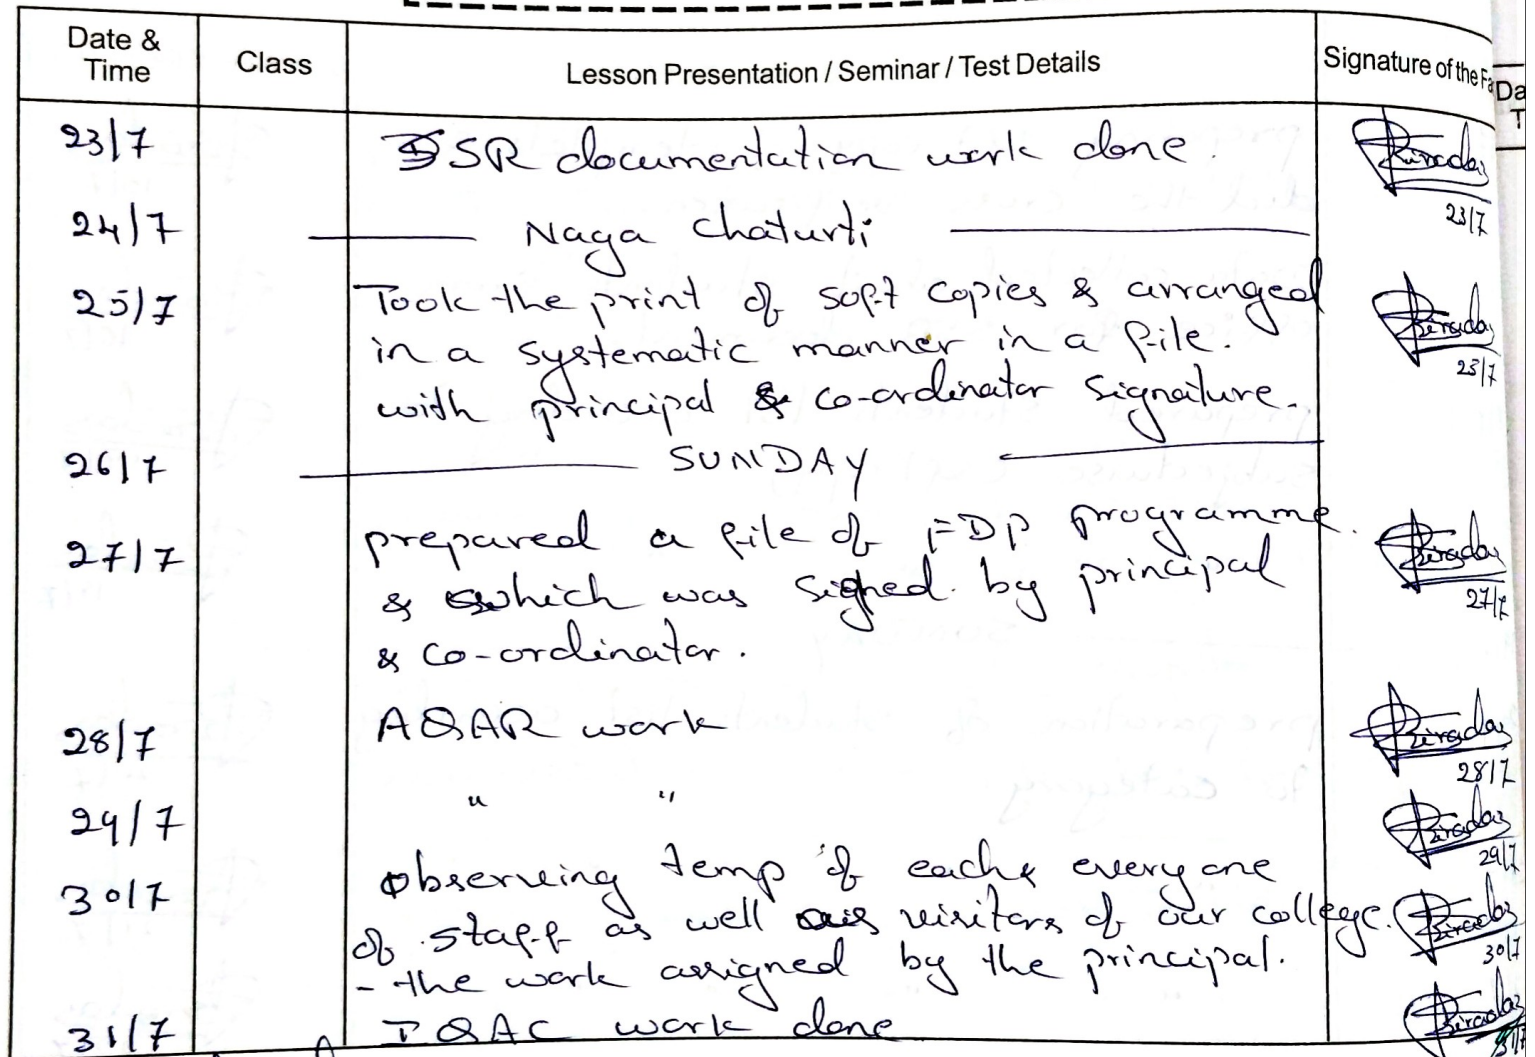 Date & Time
Class
Lesson Presentation / Seminar / Test Details
Signature of the Fa
Da
T
23/7 SSR documentation work done.
23/7
24/7 Naga Chaturti
25/7 Took the print of soft copies & arranged
in a systematic manner in a file.
with principal & co-ordinator Signature.
23/7
26/7 SUNDAY
27/7 prepared a file of FDP programme.
& which was signed by principal
& co-ordinator.
27/7
28/7 AQAR work
28/7
29/7 " "
29/7
30/7 Observing temp of each & every one
of staff as well as visitors of our college.
- the work assigned by the principal.
30/7
31/7 IQAC work done
31/7